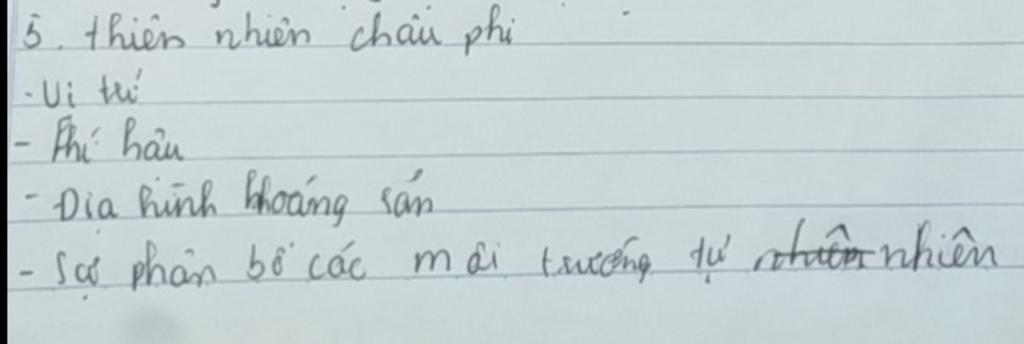 5. thiên nhiên châu phi
- Vị trí
- Khí hậu
- Địa hình khoáng sản
- Sự phân bố các môi trường tự nhiên